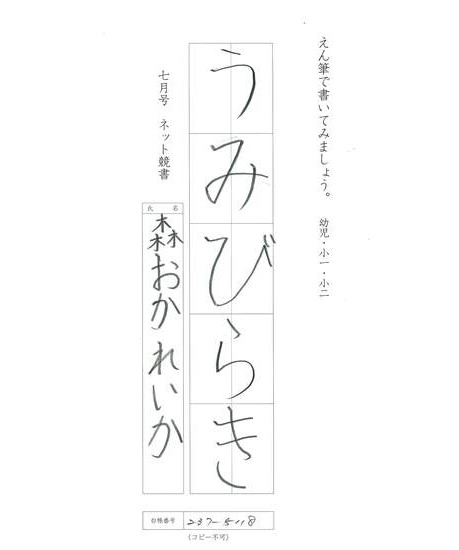 えん筆で書いてみましょう。 幼児・小一・小二
うみびらき
七月号 ネット競書
氏名
森おかれいか
台帳番号 237-5118
(コピー不可)